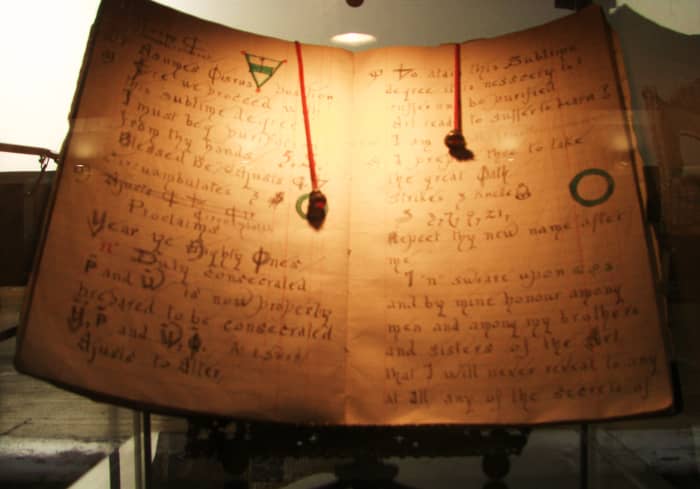 Assumes Osiris position
Priest we proceed with
this sublime degree
I must be purified
from thy hands
Blessed Be. Adjusts
circumambulates 3
Adjusts
Proclaims
Hear ye Mighty Ones
"n" Duly consecrated
P and W is now properly
prepared to be consecrated
H, P and W, P.
Ajusts to alter
To atain this sublime
degree it is nessecery to
suffer and be purified
Art ready to suffer to learn ?
I am
I prepare thee to take
the great Oath
Strikes 3 on bell
3, 7, 9, 21,
Repeat thy new name after
me
I "n" sweare upon
and by mine honour among
men and among my brothers
and sisters of the Art
that I will never reveal to any
at all any of the secrets of